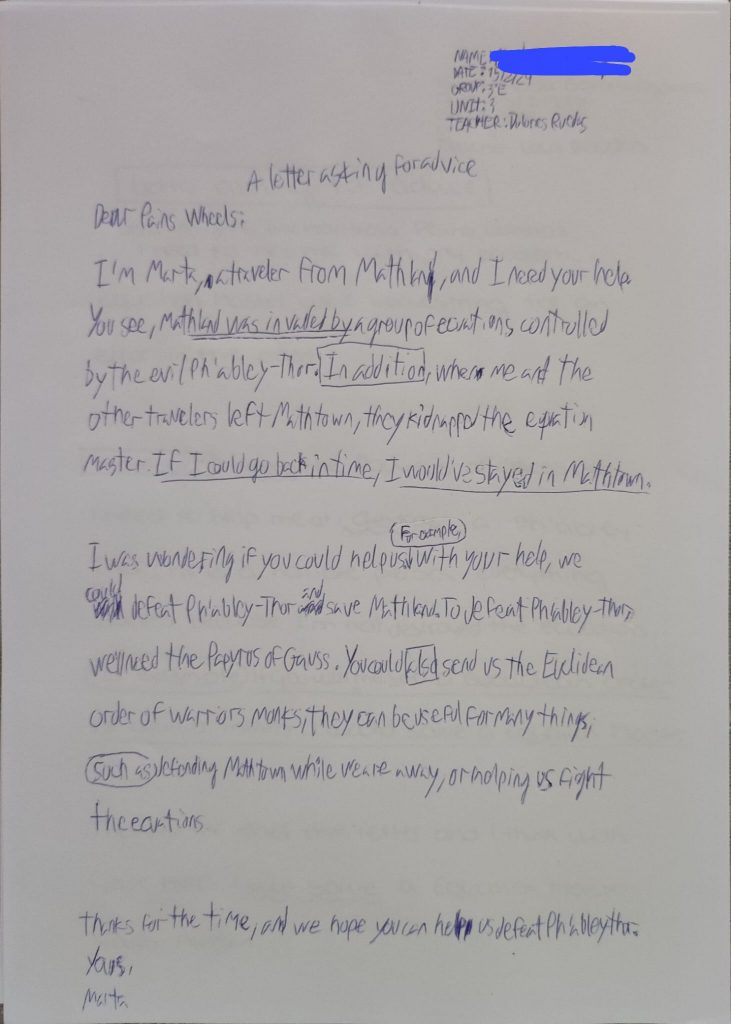 NAME:
DATE: 15/2/24
GROUP: 3ºE
UNIT: 3
TEACHER: Dolores Ruedas
A letter asking for advice
Dear Pains Wheels:
I'm Marta, a traveler from Mathland, and I need your help.
You see, Mathland was invaded by a group of ecuations, controlled
by the evil Ph'abley-Thor. In addition, when me and the
other travelers left Mathtown, they kidnapped the equation
master. If I could go back in time, I would've stayed in Mathtown.
For example,
I was wondering if you could help us. With your help, we
could defeat Ph'abley-Thor and save Mathland. To defeat Ph'abley-Thor,
we'll need the Papyros of Gauss. You could also send us the Euclidean
order of warriors monks, they can be useful for many things,
such as defending Mathtown while we are away, or helping us fight
the ecuations.
Thanks for the time, and we hope you can help us defeat Ph'abley thor.
Yours,
Marta